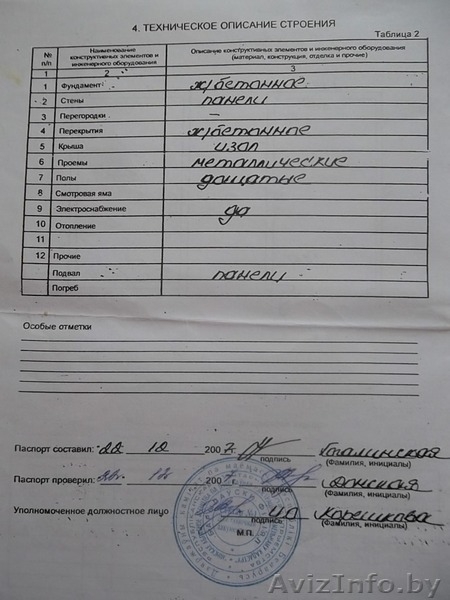 4. ТЕХНИЧЕСКОЕ ОПИСАНИЕ СТРОЕНИЯ
Таблица 2
№ п/п Наименование конструктивных элементов и инженерного оборудования Описание конструктивных элементов и инженерного оборудования (материал, конструкция, отделка и прочие)
1 2 3
1 Фундамент ж/бетонное
2 Стены панели
3 Перегородки –
4 Перекрытия ж/бетонное
5 Крыша изол
6 Проемы металлические
7 Полы дощатые
8 Смотровая яма
9 Электроснабжение да
10 Отопление
11
12 Прочие
Подвал панели
Погреб
Особые отметки
Паспорт составил: 22 12 2007г
подпись (Фамилия, инициалы)
Паспорт проверил: 2007 Донская
подпись (Фамилия, инициалы)
Уполномоченное должностное лицо Корешкова
М.П. подпись (Фамилия, инициалы)
AvizInfo.by